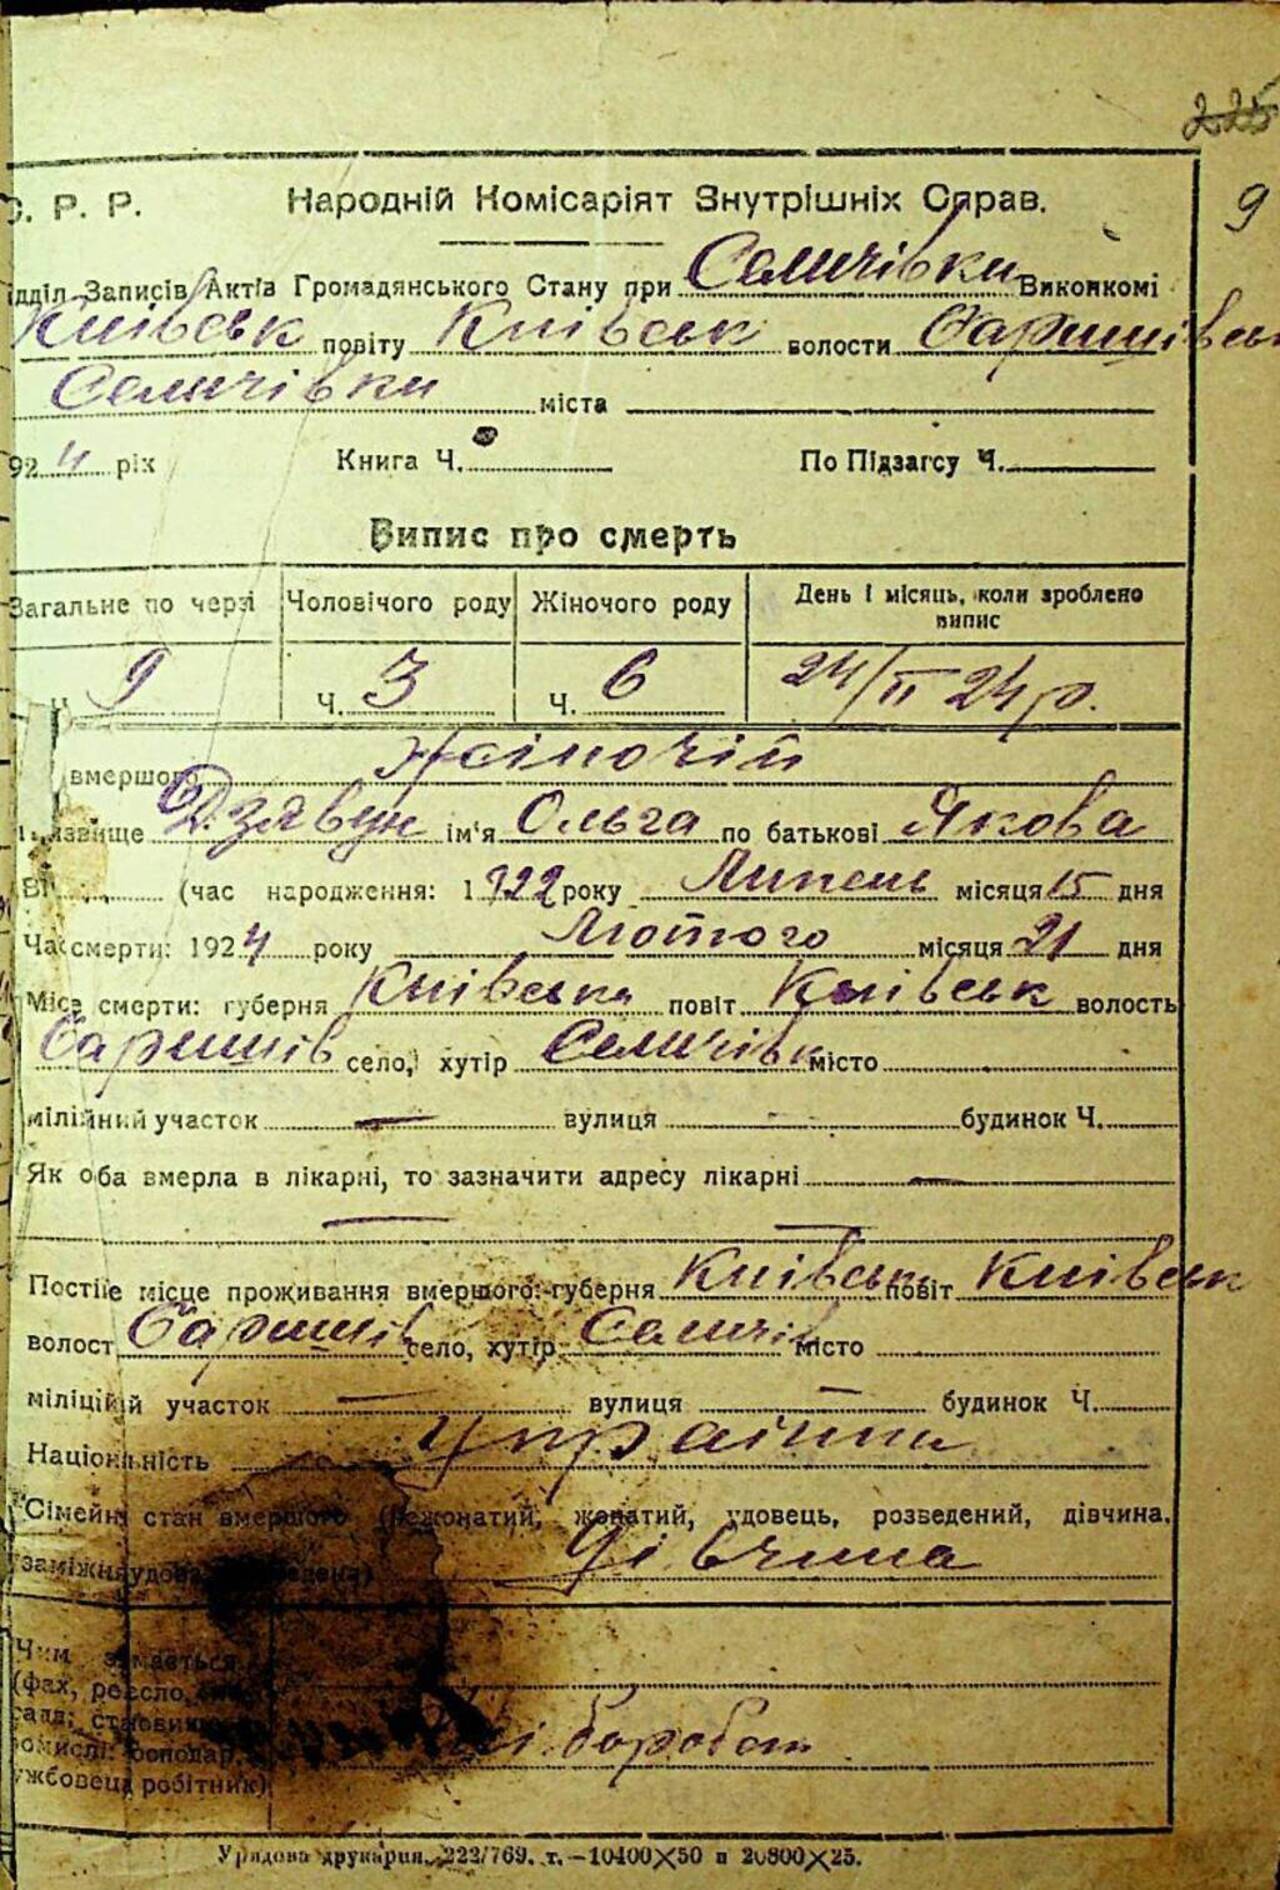 225
9
. Р. Р. Народній Комісаріят Знутрішніх Справ.
ідділ Записів Актів Громадянського Стану при Селичівки Виконкомі
Київськ повіту Київськ волости
Селичівки міста
924 рік Книга Ч. По Підзагсу Ч.
Випис про смерть
Загальне по черзі Чоловічого роду Жіночого роду День і місяць, коли зроблено випис
9 Ч. 3 Ч. 6 24/II 24 р.
вмершого Жіночій
Дзявун ім'я Ольга по батькові Якова
(час народження: 1922 року Липень місяця 15 дня
Час смерти: 1924 року Лютого місяця 21 дня
Місе смерти: губерня Київська повіт Київськ волость
село, хутір Селичівк місто
мілійний участок — вулиця будинок Ч.
Як оба вмерла в лікарні, то зазначити адресу лікарні —
Постіне місце проживання вмершого: губерня Київськ повіт Київськ
волост село, хутір Селичів місто
міліційй участок — вулиця — будинок Ч.
Національність Украінка
Сімейн стан вмершого (нежонатий, жонатий, удовець, розведений, дівчина,
заміжня удова Дівчина
Чим займається
(фах, ремесло,
хлібороб
ужбовець робітник)
Урядова друкарня. 222/769. т.—10400×50 и 20800×25.